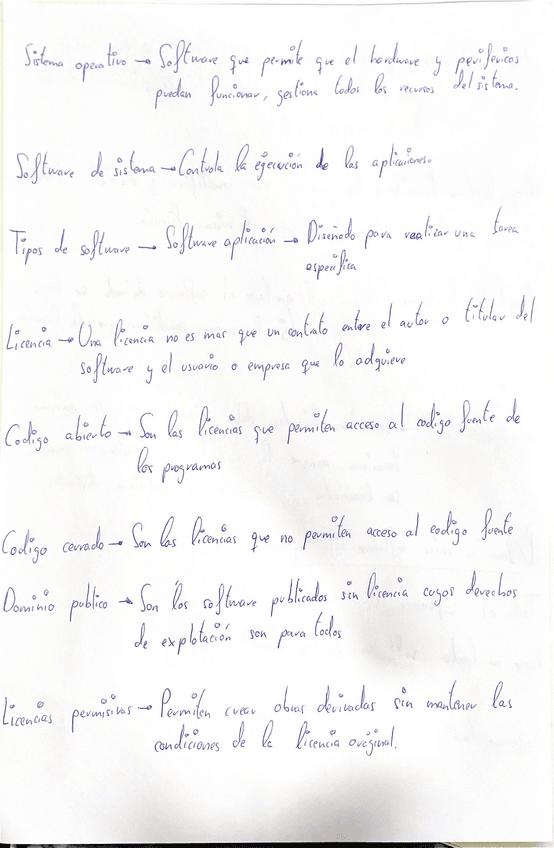 Sistema operativo → Software que permite que el hardware y periféricos
puedan funcionar, gestiona todos los recursos del sistema.
Software de sistema → Controla la ejecución de las aplicaciones.
Tipos de software → Software aplicación → Diseñado para realizar una tarea
especifica
Licencia → Una licencia no es mas que un contrato entre el autor o titular del
software y el usuario o empresa que lo adquiere
Codigo abierto → Son las licencias que permiten acceso al codigo fuente de
los programas
Codigo cerrado → Son las licencias que no permiten acceso al codigo fuente
Dominio publico → Son los software publicados sin licencia cuyos derechos
de explotación son para todos
Licencias permisivas → Permiten crear obras derivadas sin mantener las
condiciones de la licencia original.